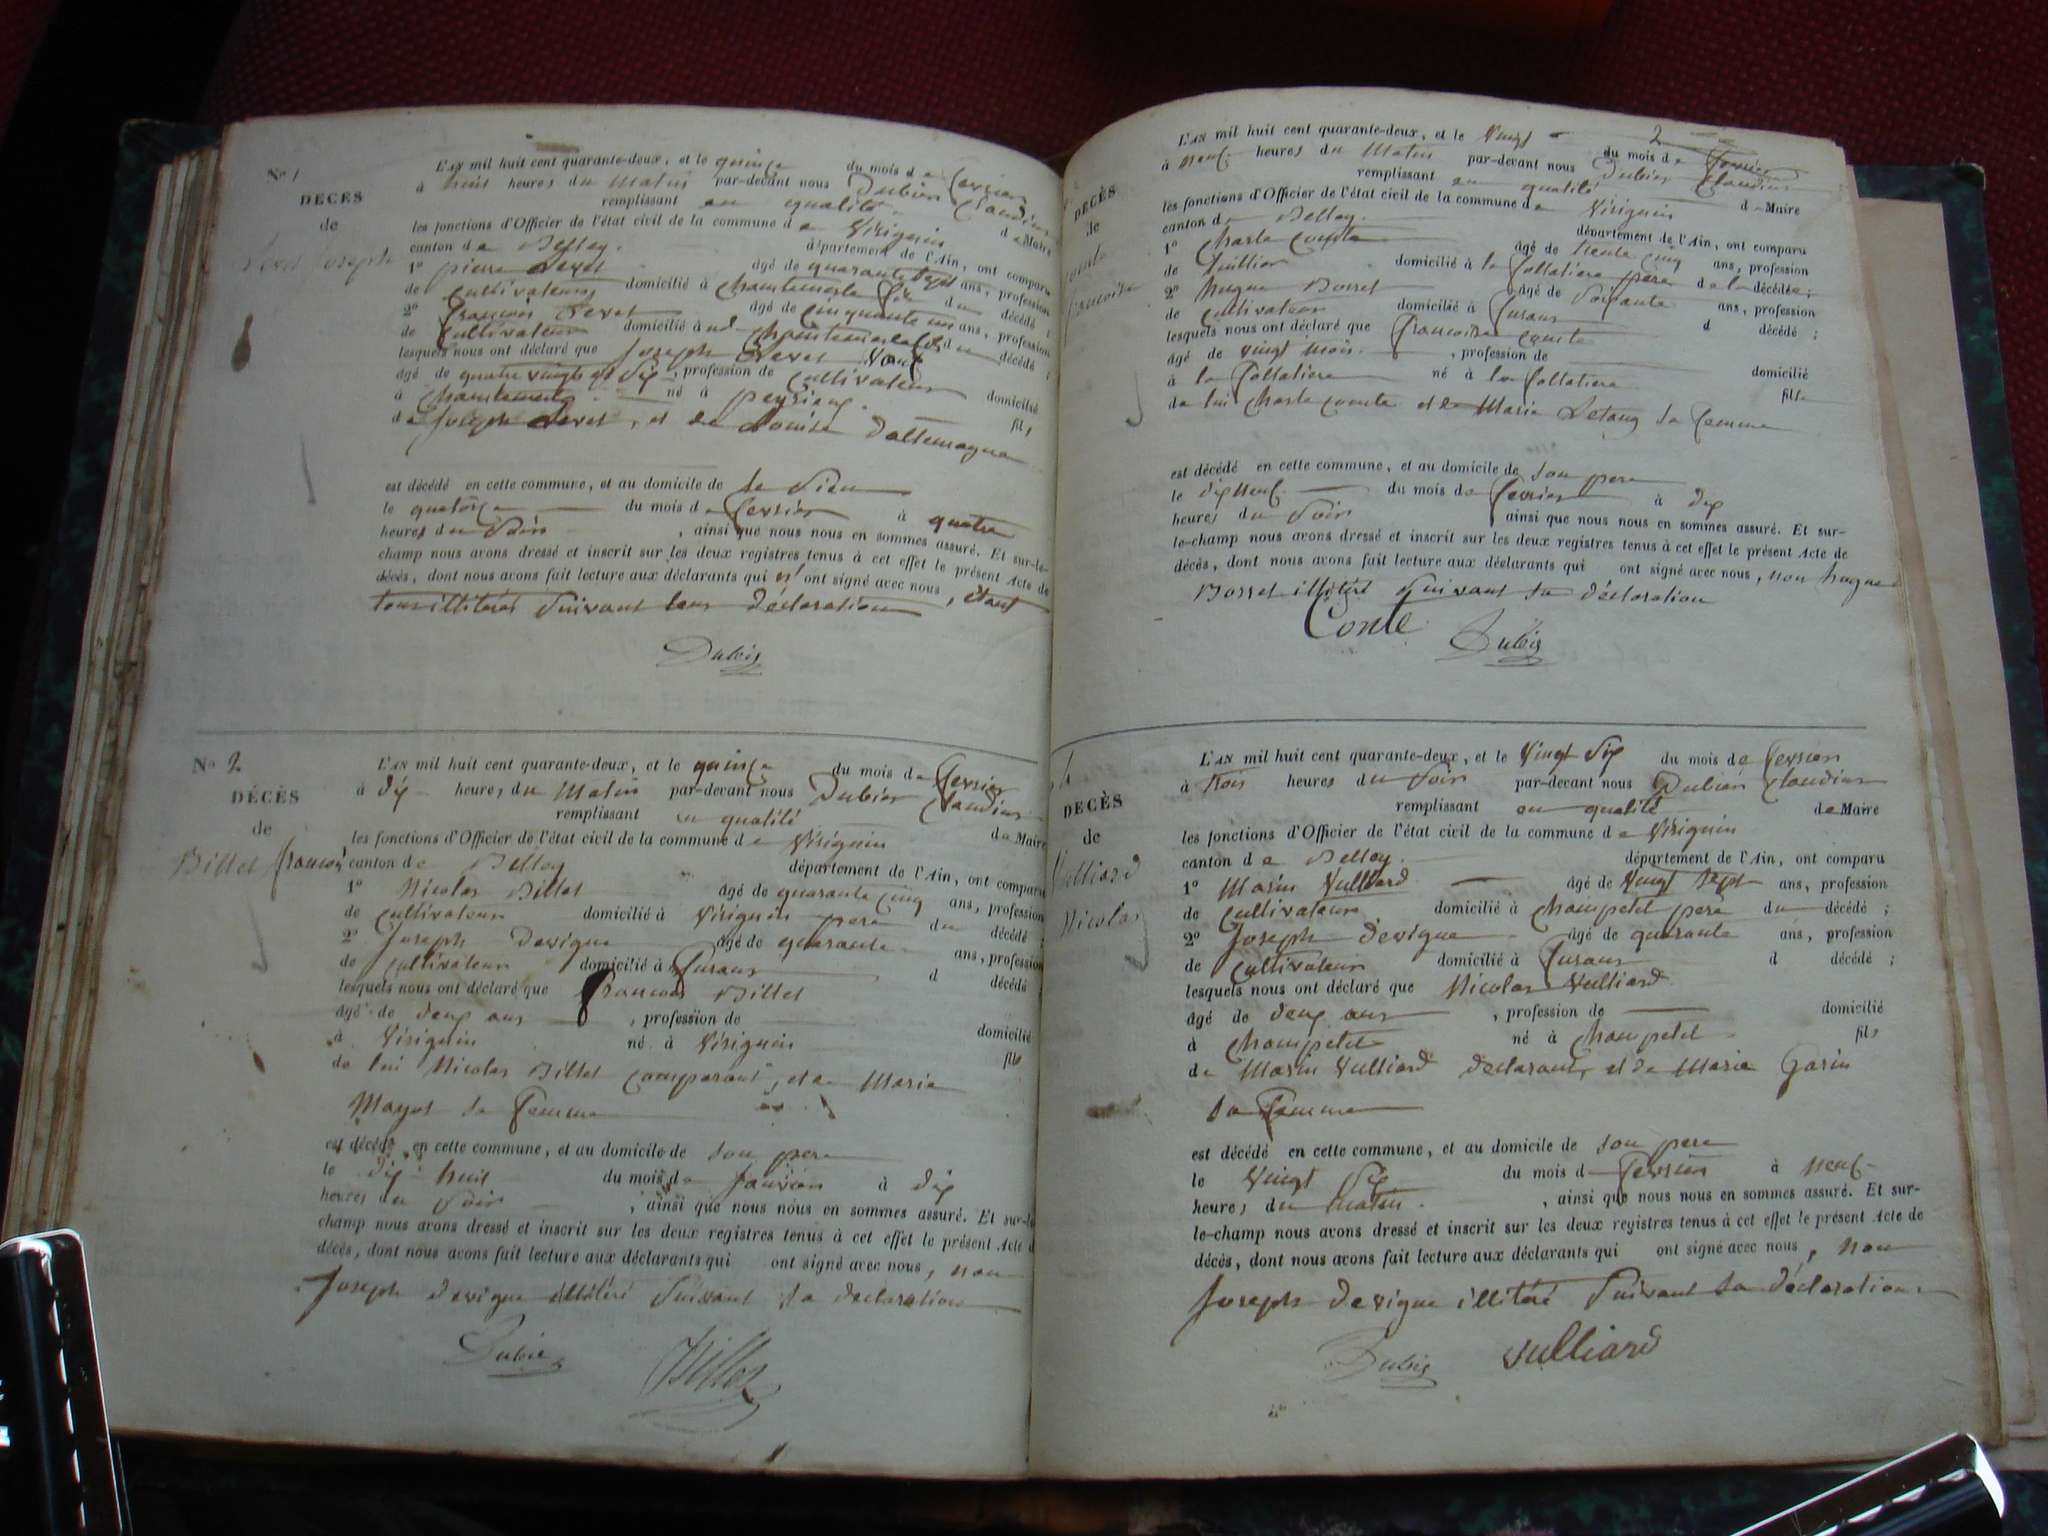 No 1
DÉCÈS
de
Joseph
L'AN mil huit cent quarante-deux, et le quinze du mois de fevrier
à huit heures du Matin par-devant nous Dubier Claudius
remplissant en qualité de Maire
les fonctions d'Officier de l'état civil de la commune de Virignin
canton de Belley. département de l'Ain, ont comparu
1° pierre Levet âgé de quarante sept ans, profession
de cultivateur domicilié à Chantemerle fils du décédé ;
2° françois Levet âgé de cinquante un ans, profession
de cultivateur domicilié à ud. Chantemerle fils du décédé ;
lesquels nous ont déclaré que Joseph Levet veuf
âgé de quatre vingts et dix, profession de cultivateur domicilié
à Chantemerle né à peyrieux fils
de Joseph Levet, et de Louise Dallemagne
est décédé en cette commune, et au domicile de le sien
le quatorze du mois de fevrier à quatre
heures du soir, ainsi que nous nous en sommes assuré. Et sur-le-
champ nous avons dressé et inscrit sur les deux registres tenus à cet effet le présent Acte de
décès, dont nous avons fait lecture aux déclarants qui n' ont signé avec nous, étant
tous illiterés suivant leur déclaration
Dubier
No 2
DÉCÈS
de
Billet françois
L'AN mil huit cent quarante-deux, et le quinze du mois de fevrier
à dix heures du Matin par-devant nous Dubier Claudius
remplissant en qualité de Maire
les fonctions d'Officier de l'état civil de la commune de Virignin
canton de Belley département de l'Ain, ont comparu
1° Nicolas Billet âgé de quarante cinq ans, profession
de cultivateur domicilié à Virignin pere du décédé ;
2° Joseph Devigne âgé de quarante ans, profession
de cultivateur domicilié à furans d décédé ;
lesquels nous ont déclaré que francois Billet
âgé de deux ans, profession de domicilié
à Virignin né à Virignin fils
de lui Nicolas Billet comparant, et de Marie
Mayot sa femme
est décédé en cette commune, et au domicile de son pere
le dix-huit du mois de janvier à dix
heures du soir, ainsi que nous nous en sommes assuré. Et sur-le-
champ nous avons dressé et inscrit sur les deux registres tenus à cet effet le présent Acte de
décès, dont nous avons fait lecture aux déclarants qui ont signé avec nous, non
Joseph devigne illitéré suivant sa declaration
Dubier Billet
2
DÉCÈS
de
comte
francoise
L'AN mil huit cent quarante-deux, et le vingt du mois de fevrier
à neuf heures du Matin par-devant nous Dubier Claudius
remplissant en qualité de Maire
les fonctions d'Officier de l'état civil de la commune de Virignin
canton de Belley. département de l'Ain, ont comparu
1° Charle comte âgé de trente cinq ans, profession
de domicilié à la pere de la décédée ;
2° hugue Borret âgé de soixante ans, profession
de cultivateur domicilié à furans d décédé ;
lesquels nous ont déclaré que francoise comte
âgé de vingt mois, profession de domicilié
à la né à la fille
de lui Charle comte et de Marie Letang sa femme
est décédé en cette commune, et au domicile de son pere
le dix neuf du mois de fevrier à dix
heures du soir ainsi que nous nous en sommes assuré. Et sur-
le-champ nous avons dressé et inscrit sur les deux registres tenus à cet effet le présent Acte de
décès, dont nous avons fait lecture aux déclarants qui ont signé avec nous, non hugue
Borret illitéré suivant sa déclaration
Conte Dubier
4
DÉCÈS
de
Vulliard
Nicolas
L'AN mil huit cent quarante-deux, et le vingt six du mois de fevrier
à trois heures du soir par-devant nous Dubier Claudius
remplissant en qualité de Maire
les fonctions d'Officier de l'état civil de la commune de Virignin
canton de Belley. département de l'Ain, ont comparu
1° Marin Vulliard âgé de vingt sept ans, profession
de cultivateur domicilié à Champetel pere du décédé ;
2° Joseph devigne âgé de quarante ans, profession
de cultivateur domicilié à furans d décédé ;
lesquels nous ont déclaré que Nicolas Vulliard
âgé de deux ans, profession de domicilié
à Champetel né à Champetel fils
de Marin Vulliard declarant, et de Marie Garin
sa femme
est décédé en cette commune, et au domicile de son pere
le vingt six du mois de fevrier à neuf
heures du matin, ainsi que nous nous en sommes assuré. Et sur-
le-champ nous avons dressé et inscrit sur les deux registres tenus à cet effet le présent Acte de
décès, dont nous avons fait lecture aux déclarants qui ont signé avec nous, non
Joseph devigne illiteré suivant sa déclaration.
Dubier Vulliard